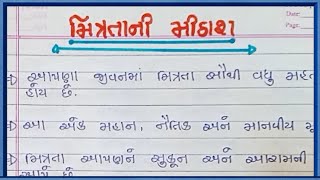 Date:
Page:
મિત્રતાની મીઠાશ
→ આપણા જીવનમાં મિત્રતા સૌથી વધુ
હોય છે.
→ આ એક મહાન, નૈતિક અને માનવીય
→ મિત્રતા આપણને સુકૂન અને આરામની